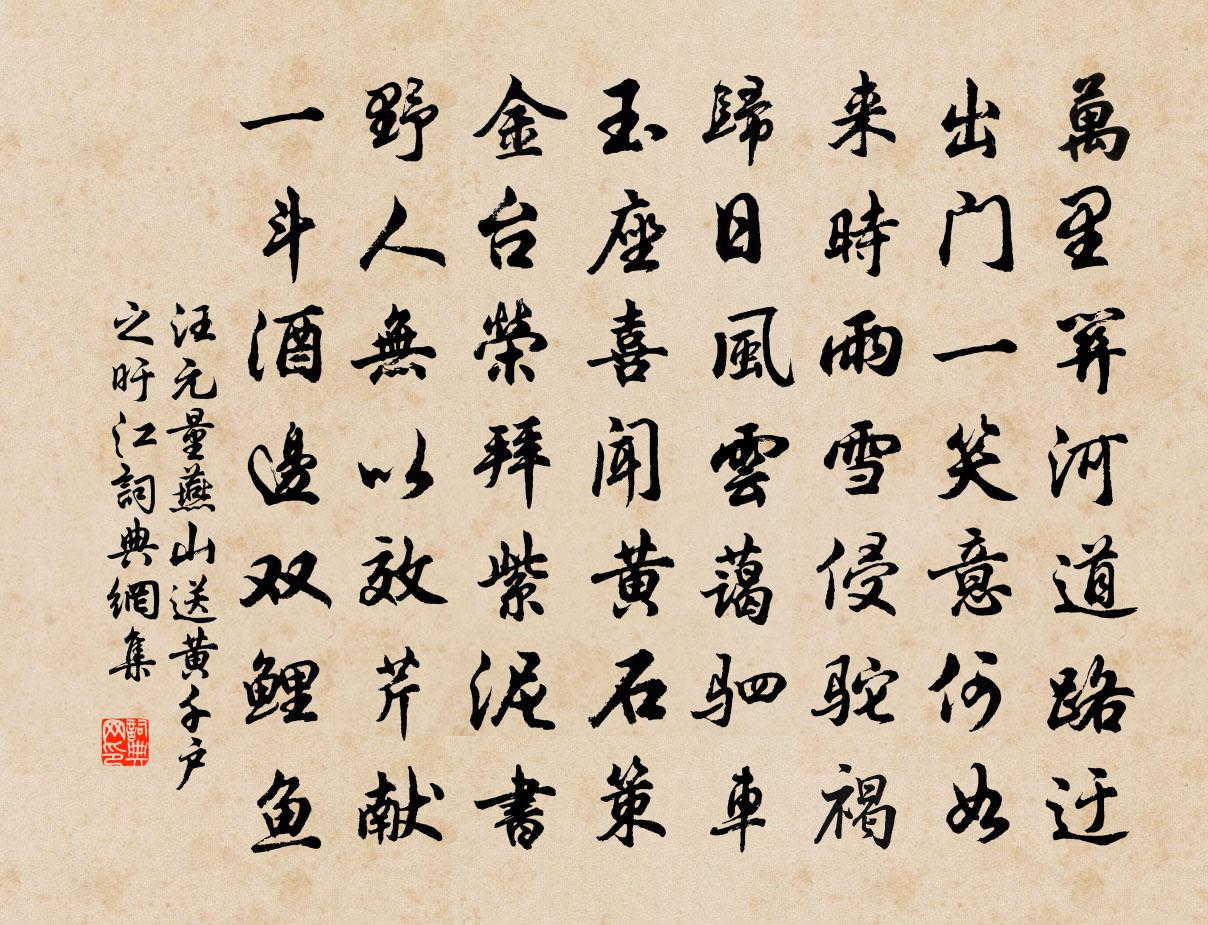 萬里関河道路迂
出门一笑意何如
来時雨雪侵驼褐
歸日風雲藹驷車
玉座喜闻黄石策
金台榮拜紫泥書
野人無以效芹献
一斗酒邊双鲤鱼
汪元量燕山送黄千户
之旴江詞典網集
詞典
网印